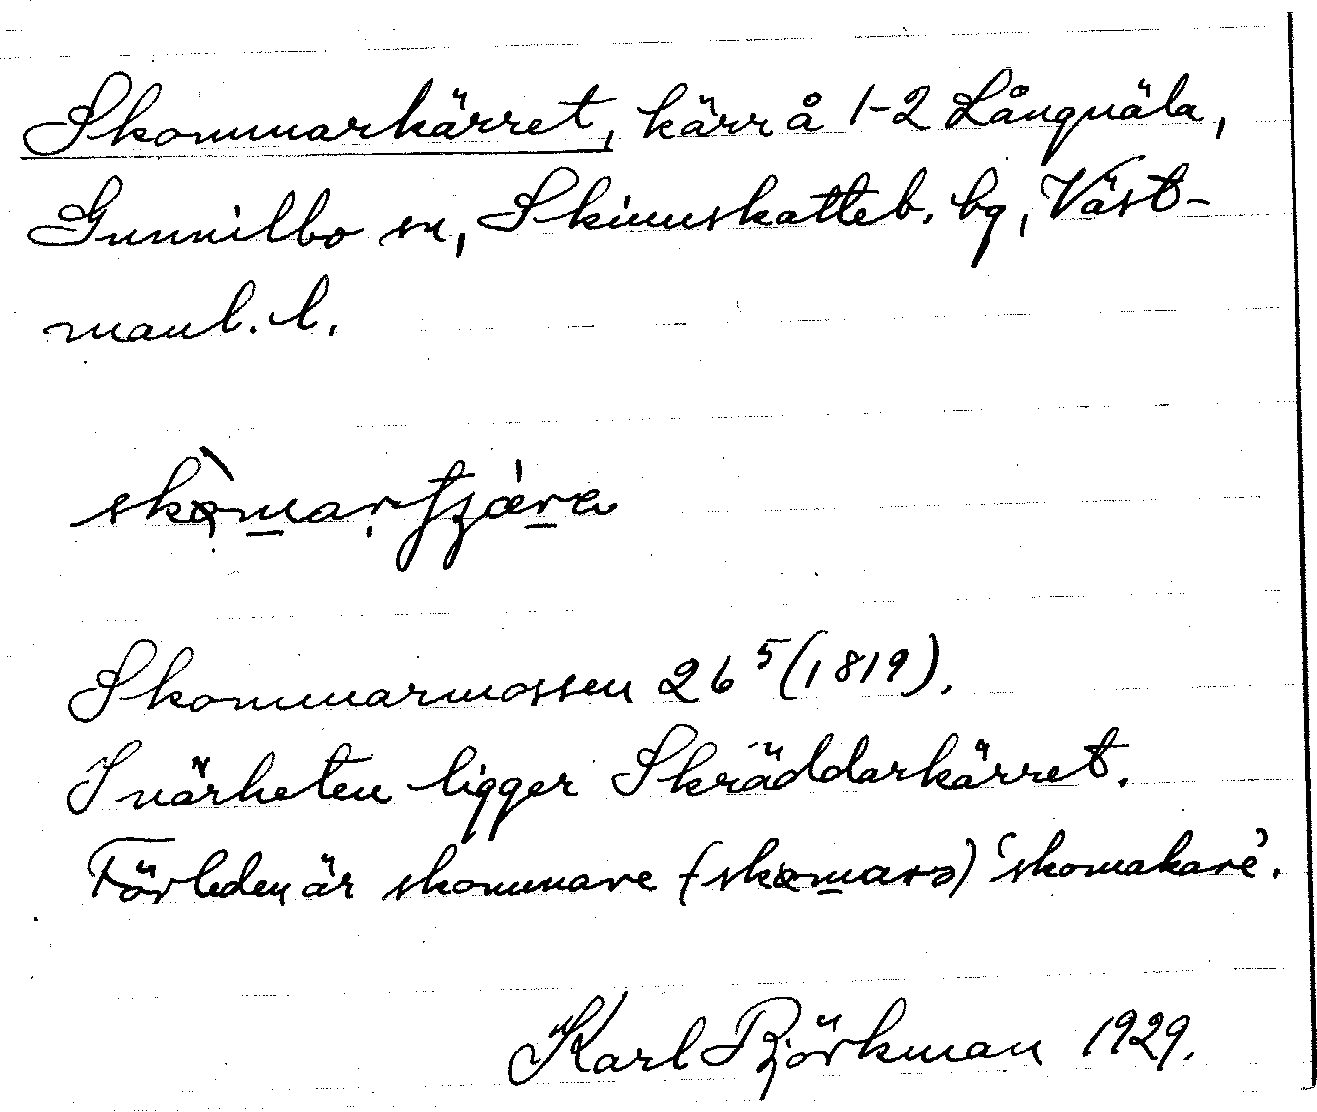 Skommarkärret, kärr å 1-2 Långnäla,
Gunnilbo sn, Skinnskatteb. bg, Väst-
manl. l.
Skommarmossen 26⁵ (1819).
I närheten ligger Skräddarkärret.
Förleden är skommare () 'skomakare'.
Karl Björkman 1929.